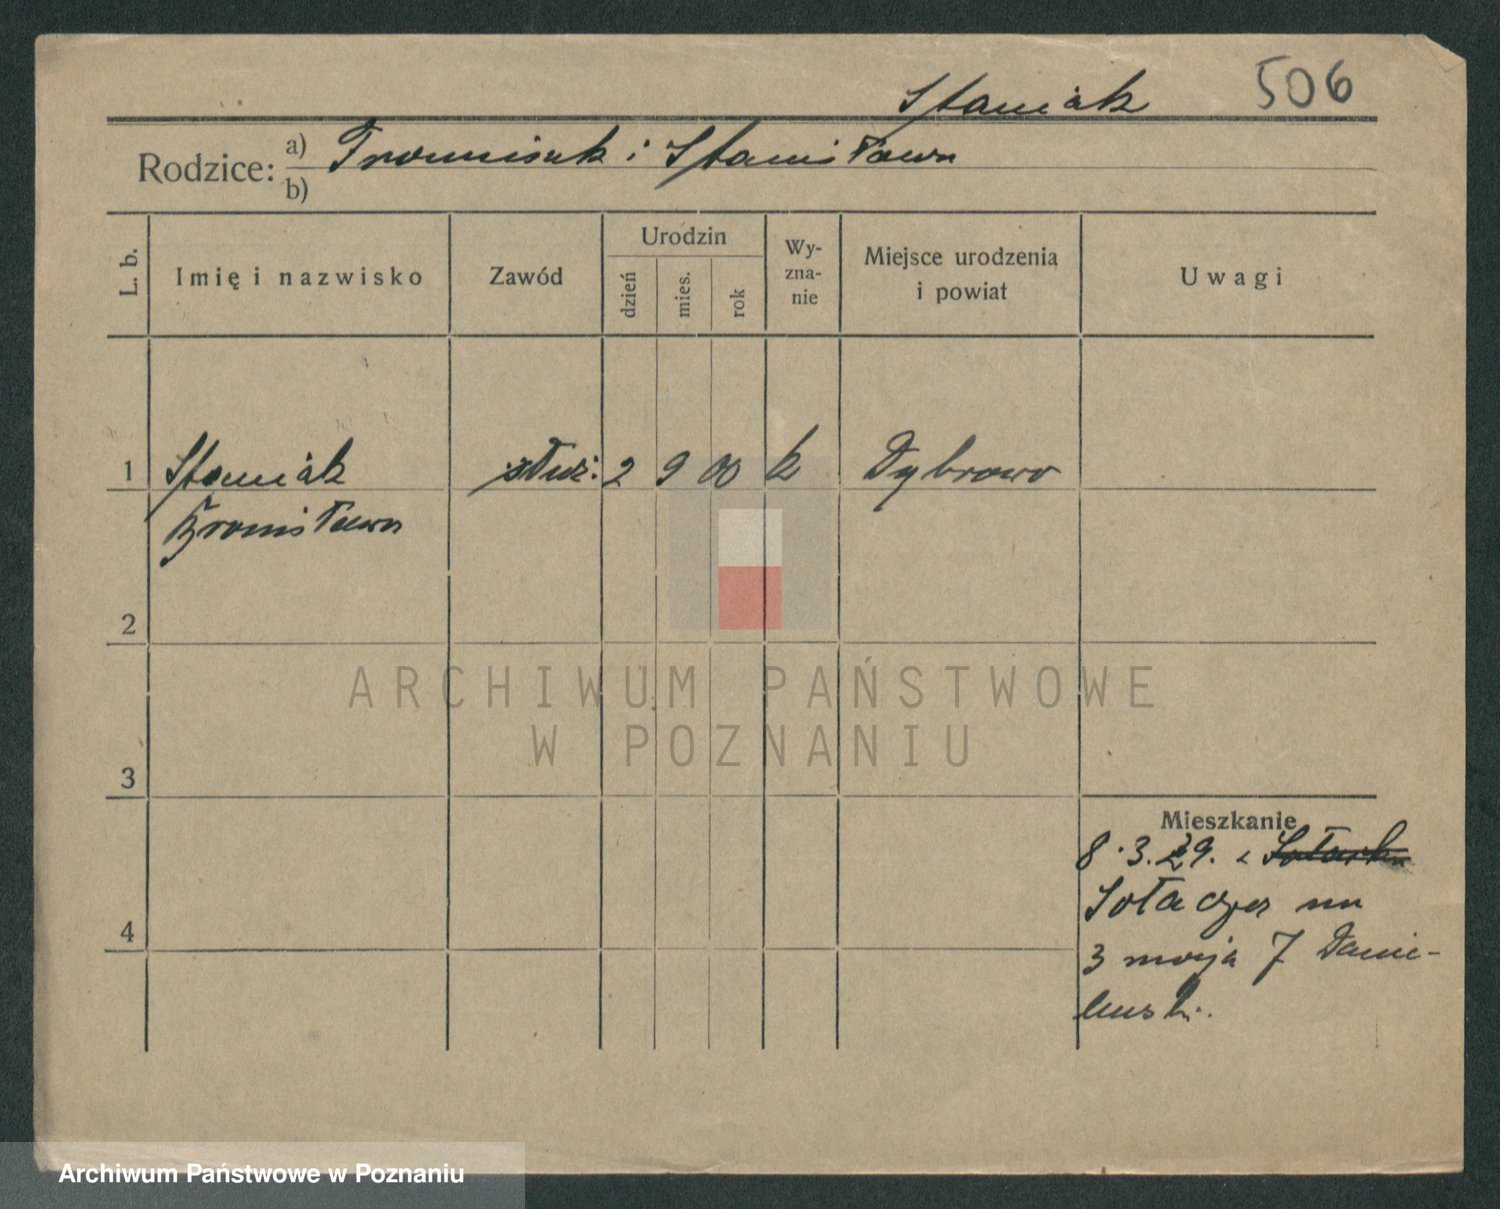 Staniak 506
Rodzice: a) Franciszek i Stanisława
b)
L. b. Imię i nazwisko Zawód Urodzin dzień mies. rok Wyznanie Miejsce urodzenia i powiat Uwagi
1 Staniak służ. 2 9 00 k Dąbrowa
Bronisława
2
ARCHIWUM PAŃSTWOWE
W POZNANIU
3
Mieszkanie
8.3.29. z
Sołacza na
4
3 maja 7 Danie-
lewski.
Archiwum Państwowe w Poznaniu